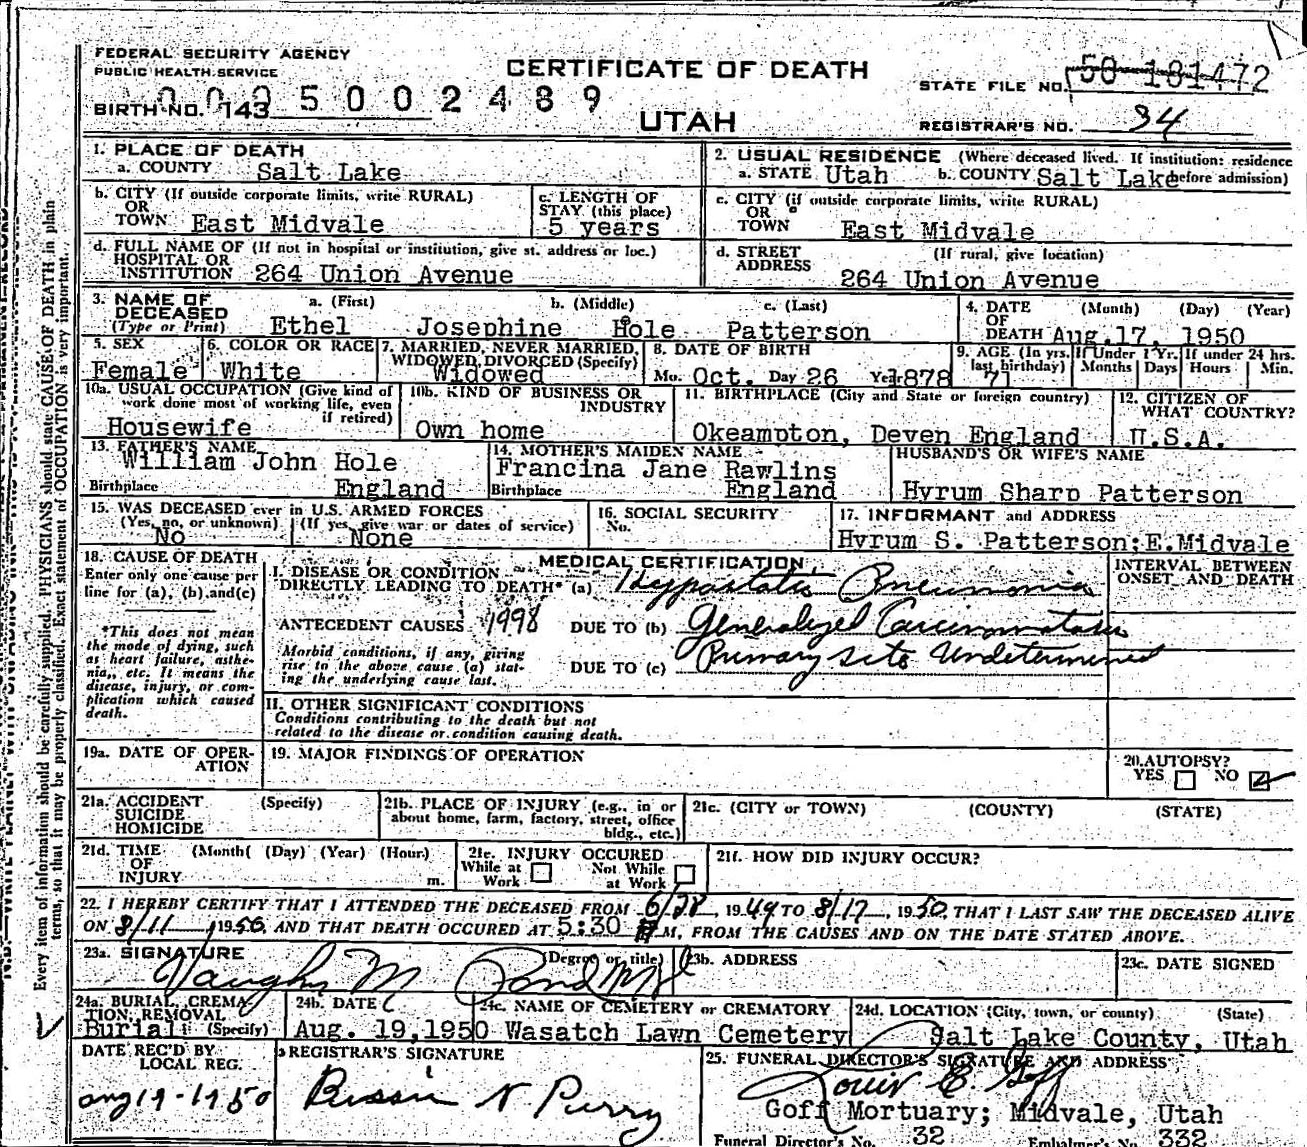 FEDERAL SECURITY AGENCY
PUBLIC HEALTH SERVICE
CERTIFICATE OF DEATH
STATE FILE NO. 50-181472
BIRTH NO. 143
0005002489
UTAH
REGISTRAR'S NO. 34
1. PLACE OF DEATH
a. COUNTY Salt Lake
2. USUAL RESIDENCE (Where deceased lived. If institution: residence before admission)
a. STATE Utah b. COUNTY Salt Lake
b. CITY (If outside corporate limits, write RURAL)
OR
TOWN East Midvale
c. LENGTH OF
STAY (this place)
5 years
c. CITY (if outside corporate limits, write RURAL)
OR
TOWN East Midvale
d. FULL NAME OF (If not in hospital or institution, give st. address or loc.)
HOSPITAL OR
INSTITUTION 264 Union Avenue
d. STREET (If rural, give location)
ADDRESS
264 Union Avenue
3. NAME OF
DECEASED
(Type or Print)
a. (First) b. (Middle) c. (Last)
Ethel Josephine Hole Patterson
4. DATE (Month) (Day) (Year)
OF
DEATH Aug.17, 1950
5. SEX
Female
6. COLOR OR RACE
White
7. MARRIED, NEVER MARRIED,
WIDOWED, DIVORCED (Specify)
Widowed
8. DATE OF BIRTH
Mo. Oct. Day 26 Yr. 1878
9. AGE (In yrs. last birthday)
71
If Under 1 Yr.
Months Days
If under 24 hrs.
Hours Min.
10a. USUAL OCCUPATION (Give kind of
work done most of working life, even
if retired)
Housewife
10b. KIND OF BUSINESS OR
INDUSTRY
Own home
11. BIRTHPLACE (City and State or foreign country)
Okeampton, Deven England
12. CITIZEN OF
WHAT COUNTRY?
U.S.A.
13. FATHER'S NAME
William John Hole
Birthplace England
14. MOTHER'S MAIDEN NAME
Francina Jane Rawlins
Birthplace England
HUSBAND'S OR WIFE'S NAME
Hyrum Sharp Patterson
15. WAS DECEASED ever in U.S. ARMED FORCES
(Yes, no, or unknown) (If yes, give war or dates of service)
No None
16. SOCIAL SECURITY
No.
17. INFORMANT and ADDRESS
Hyrum S. Patterson; E.Midvale
18. CAUSE OF DEATH
Enter only one cause per
line for (a), (b) and (c)
*This does not mean
the mode of dying, such
as heart failure, asthe-
nia, etc. It means the
disease, injury, or com-
plication which caused
death.
MEDICAL CERTIFICATION
INTERVAL BETWEEN
ONSET AND DEATH
I. DISEASE OR CONDITION
DIRECTLY LEADING TO DEATH* (a) Hypostatic Pneumonia
ANTECEDENT CAUSES 1998 DUE TO (b) Generalized Carcinomatosis
Morbid conditions, if any, giving
rise to the above cause (a) stat-
ing the underlying cause last.
DUE TO (c) Primary site Undetermined
II. OTHER SIGNIFICANT CONDITIONS
Conditions contributing to the death but not
related to the disease or condition causing death.
19a. DATE OF OPER-
ATION
19. MAJOR FINDINGS OF OPERATION
20. AUTOPSY?
YES NO
21a. ACCIDENT (Specify)
SUICIDE
HOMICIDE
21b. PLACE OF INJURY (e.g., in or
about home, farm, factory, street, office
bldg., etc.)
21c. (CITY or TOWN) (COUNTY) (STATE)
21d. TIME (Month( (Day) (Year) (Hour)
OF
INJURY m.
21e. INJURY OCCURED
While at Work Not While at Work
21f. HOW DID INJURY OCCUR?
22. I HEREBY CERTIFY THAT I ATTENDED THE DECEASED FROM 6/28, 1949 TO 8/17, 1950, THAT I LAST SAW THE DECEASED ALIVE
ON 8/11, 1950, AND THAT DEATH OCCURED AT 5:30 M, FROM THE CAUSES AND ON THE DATE STATED ABOVE.
23a. SIGNATURE (Degree or title)
Vaughn M Pond MD
23b. ADDRESS
23c. DATE SIGNED
24a. BURIAL, CREMA-
TION, REMOVAL
Burial (Specify)
24b. DATE
Aug. 19,1950
24c. NAME OF CEMETERY or CREMATORY
Wasatch Lawn Cemetery
24d. LOCATION (City, town, or county) (State)
Salt Lake County, Utah
DATE REC'D BY
LOCAL REG.
Aug 19-1950
REGISTRAR'S SIGNATURE
Bessie N. Perry
25. FUNERAL DIRECTOR'S SIGNATURE AND ADDRESS
Louis E. Goff
Goff Mortuary; Midvale, Utah
Funeral Director's No. 32 Embalmer's No. 332
Every item of information should be carefully supplied. PHYSICIANS should state CAUSE OF DEATH in plain
terms, so that it may be properly classified. Exact statement of OCCUPATION is very important.